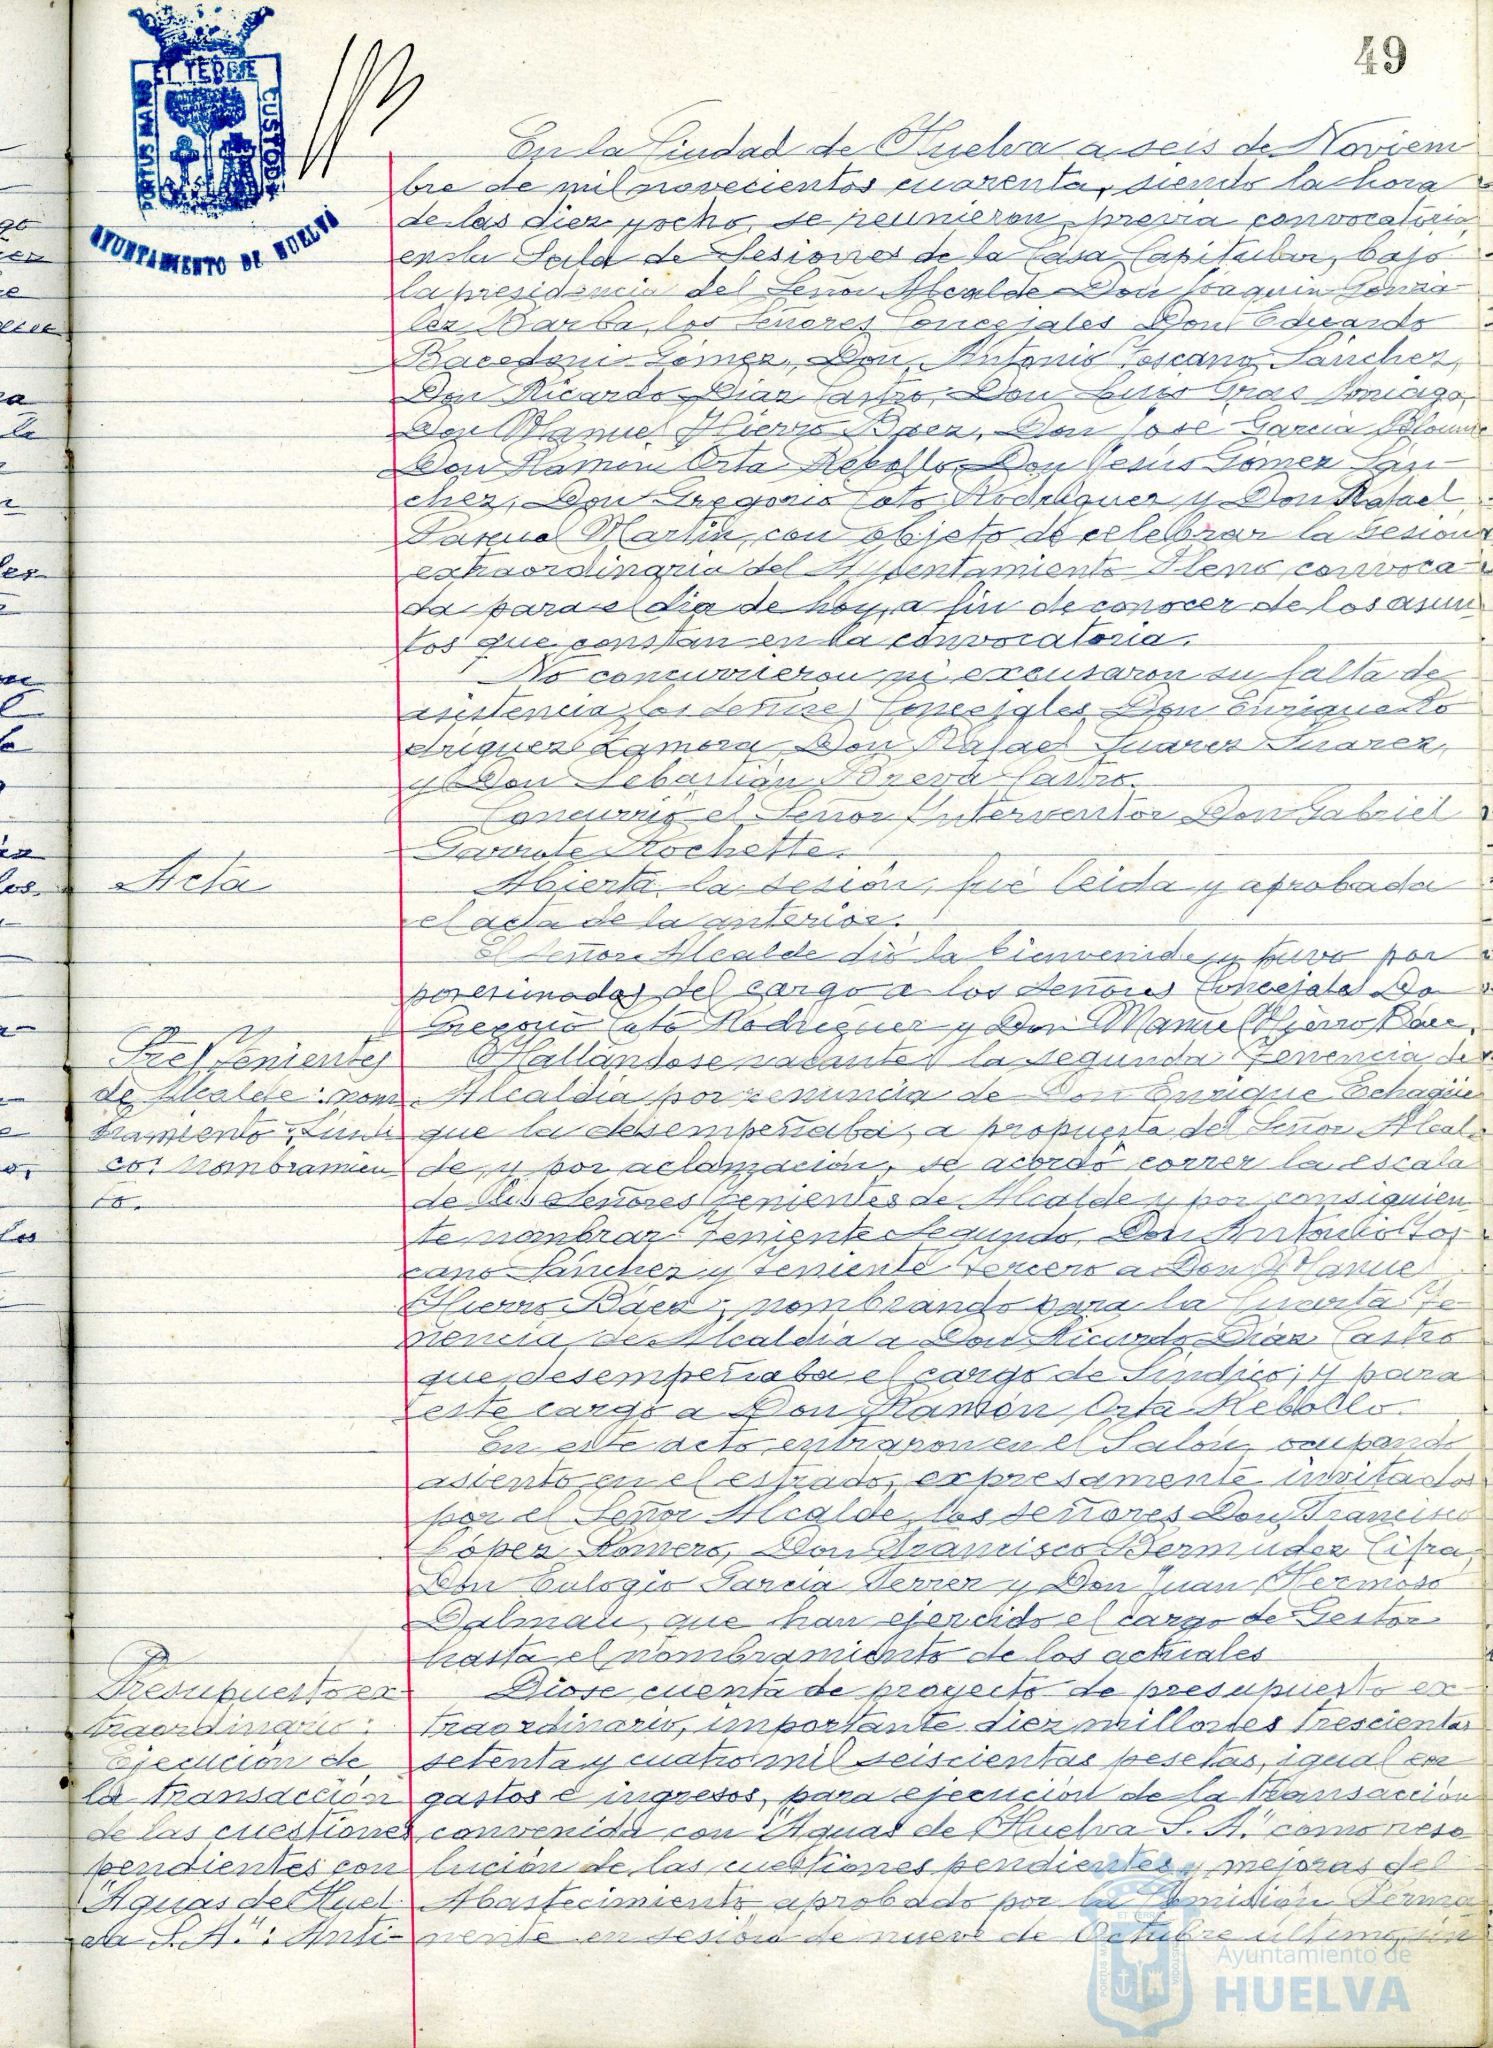 49
PORTUS MARIS ET TERRÆ CUSTODIA
AYUNTAMIENTO DE HUELVA
En la Ciudad de Huelva a seis de Noviem
bre de mil novecientos cuarenta, siendo la hora
de las diez y ocho, se reunieron previa convocatoria
en la Sala de Sesiones de la Casa Capitular, bajo
la presidencia del Señor Alcalde Don Joaquin Gonzá
lez Barba, los Señores Concejales Don Eduardo
Bacedoni Gómez, Don Antonio Toscano Sánchez,
Don Ricardo Díaz Castro, Don Luis Gras
Don Manuel Hierro Baez, Don José García
Don Ramón Orta Rebollo, Don Jesús Gómez Sán-
chez, Don Gregorio Coto Rodríguez y Don Rafael
Martín, con objeto de celebrar la sesión
extraordinaria del Ayuntamiento Pleno convoca-
da para el día de hoy, a fin de conocer de los asun
tos que constan en la convocatoria.
No concurrieron ni excusaron su falta de
asistencia los señores Concejales Don Enrique Ro
dríguez Zamora, Don Rafael Suarez Suarez,
y Don Sebastián Breva Castro.
Concurrió el Señor Interventor Don Gabriel
Garrote Rochette.
Acta
Abierta la sesión, fué leida y aprobada
el acta de la anterior.
El Señor Alcalde dió la bienvenida y tuvo por
posesionados del cargo a los señores Concejales Do
Gregorio Coto Rodríguez y Don Manuel Hierro Baez.
Tres Tenientes
de Alcalde: nom
bramiento: Síndi
co: nombramien
to.
Hallándose vacante la segunda Tenencia de
Alcaldía por renuncia de Don Enrique Echagüe
que la desempeñaba, a propuesta del Señor Alcal
de, y por aclamación, se acordó correr la escala
de los Señores Tenientes de Alcalde y por consiguien
te nombrar Teniente Segundo Don Antonio Tos
cano Sánchez y Teniente tercero a Don Manuel
Hierro Báez, nombrando para la Cuarta Te-
nencia de Alcaldía a Don Ricardo Díaz Castro
que desempeñaba el cargo de Síndico; y para
este cargo a Don Ramón Orta Rebollo.
En este acto entraron en el Salón, ocupando
asiento en el estrado, expresamente invitados
por el Señor Alcalde, los señores Don Francisco
López Romero, Don Francisco Bermúdez Cifra,
Don Eulogio García Ferrer y Don Juan Hermoso
Dalmau, que han ejercido el cargo de Gestor
hasta el nombramiento de los actuales
Presupuesto ex
traordinario:
Ejecución de
la transacción
de las cuestiones
pendientes con
"Aguas de Huel
va S.A.": Anti-
Dióse cuenta de proyecto de presupuesto ex
traordinario, importante diez millones trescientas
setenta y cuatro mil seiscientas pesetas, igual en
gastos e ingresos, para ejecución de la transacción
convenida con "Aguas de Huelva S.A." como reso
lución de las cuestiones pendientes y mejoras del
Abastecimiento aprobado por la Comisión Perma
nente en sesión de nueve de Octubre último, sin
Ayuntamiento de
HUELVA